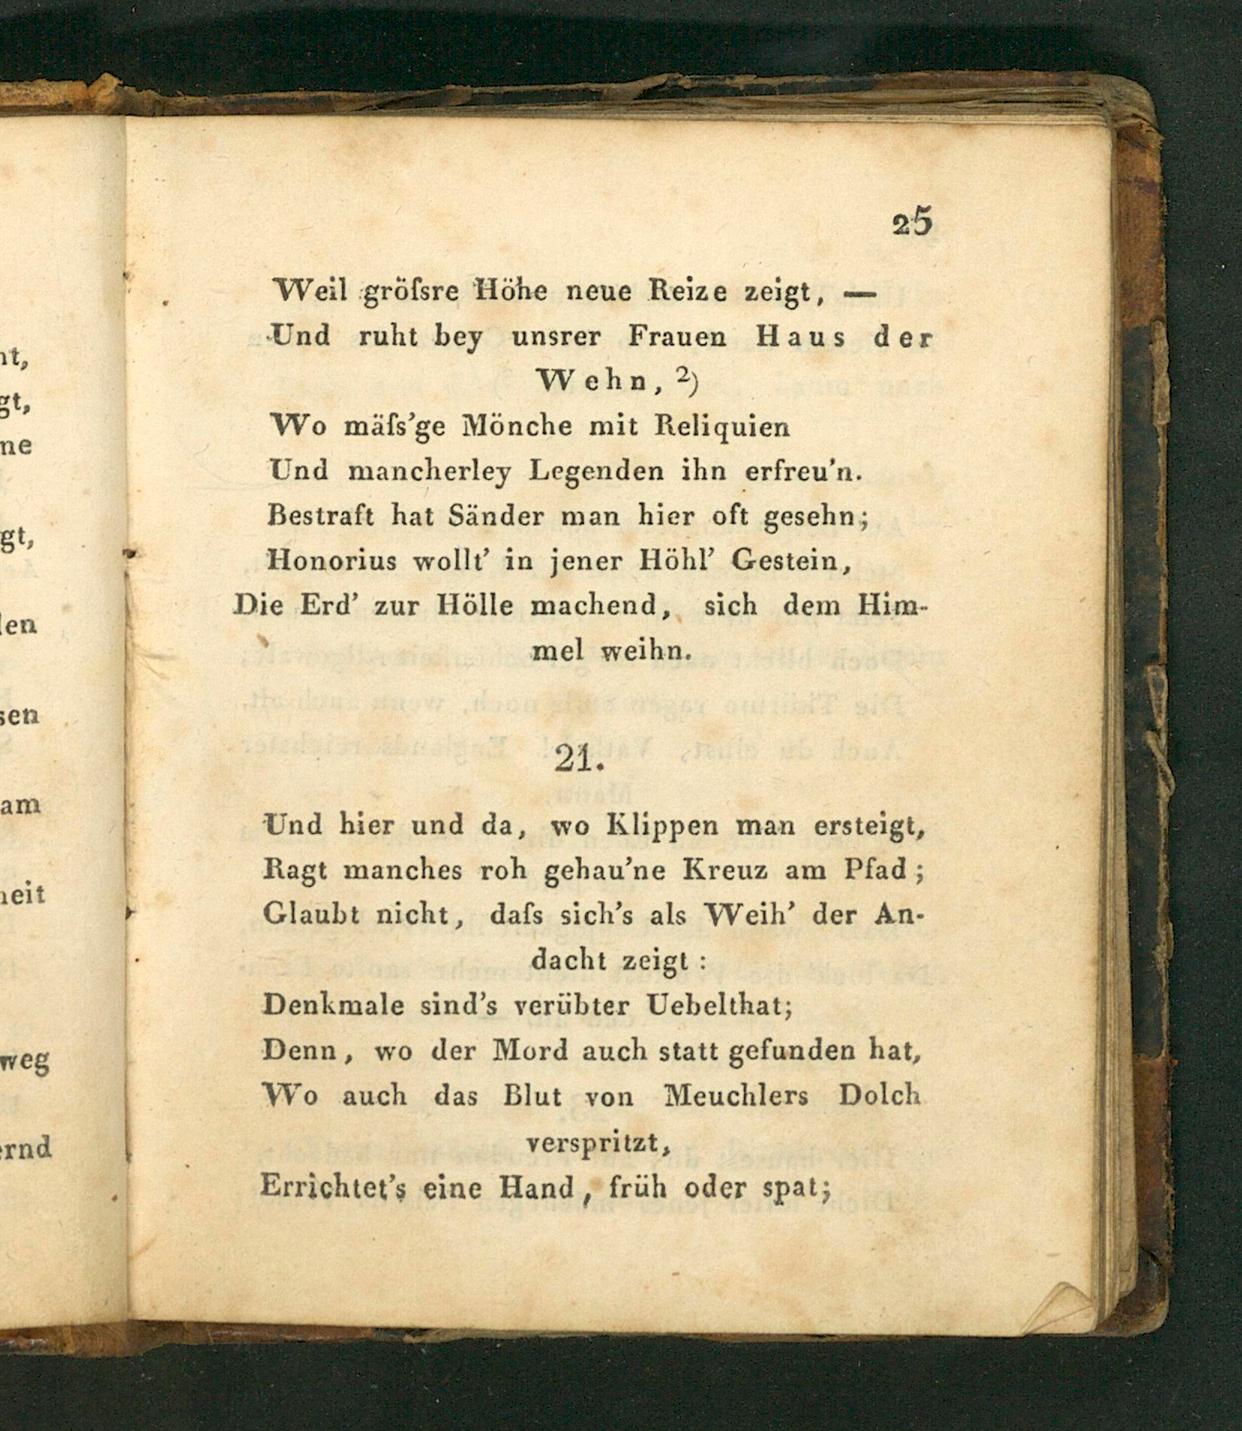 25
Weil gröſsre Höhe neue Reize zeigt, —
Und ruht bey unsrer Frauen Haus der
Wehn, 2)
Wo mäſs’ge Mönche mit Reliquien
Und mancherley Legenden ihn erfreu’n.
Bestraft hat Sänder man hier oft gesehn;
Honorius wollt’ in jener Höhl’ Gestein,
Die Erd’ zur Hölle machend, sich dem Him-
mel weihn.
21.
Und hier und da, wo Klippen man ersteigt,
Ragt manches roh gehau’ne Kreuz am Pfad;
Glaubt nicht, daſs sich’s als Weih’ der An-
dacht zeigt:
Denkmale sind’s verübter Uebelthat;
Denn, wo der Mord auch statt gefunden hat,
Wo auch das Blut von Meuchlers Dolch
verspritzt,
Errichtet’s eine Hand, früh oder spat;